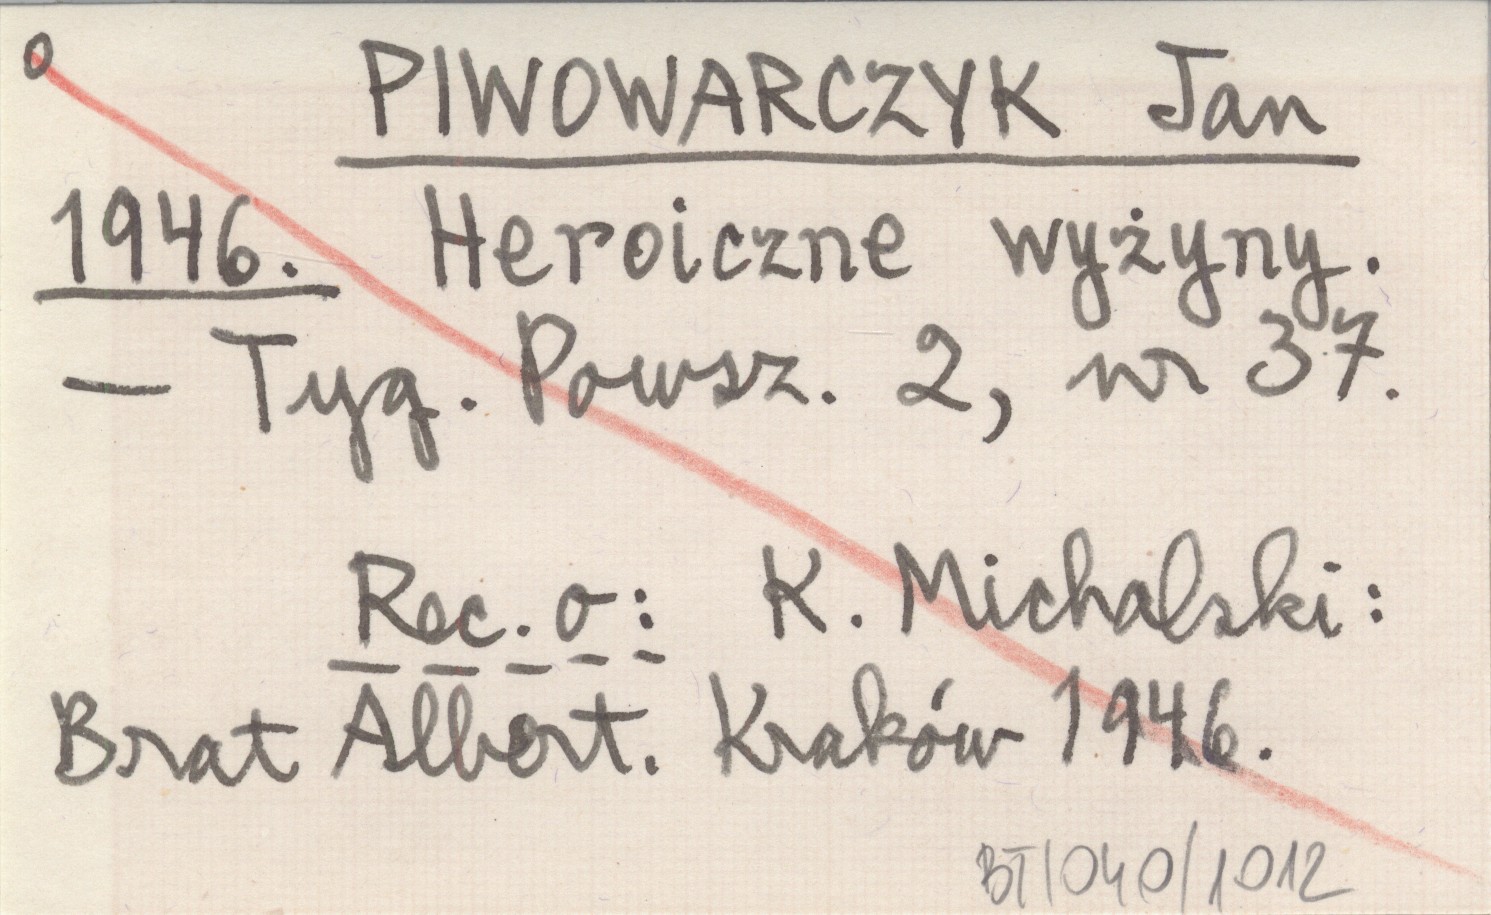 o PIWOWARCZYK Jan
1946. Heroiczne wyżyny.
— Tyg. Powsz. 2, nr 37.
Rec. o: K. Michalski:
Brat Albert. Kraków 1946.
BT/040/1012